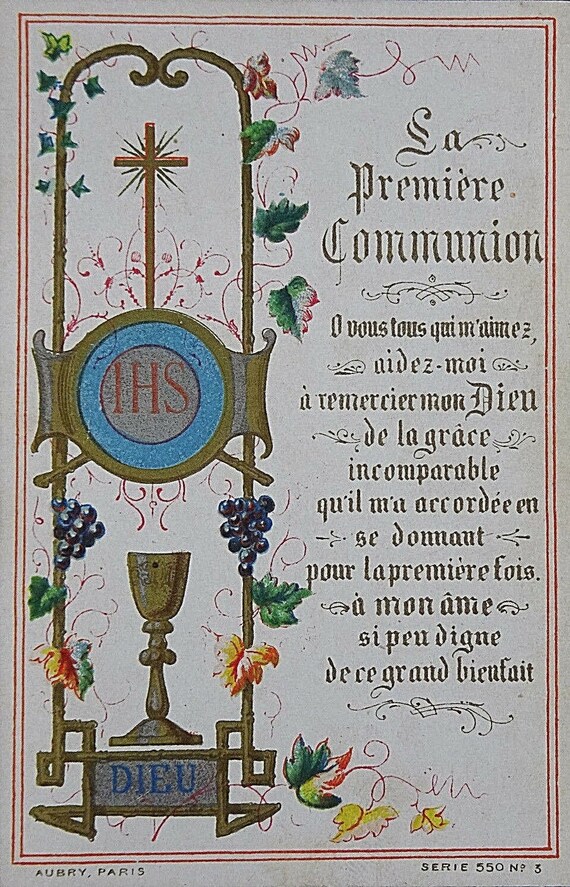 La
Première
Communion
O vous tous qui m'aimez,
aidez-moi
à remercier mon Dieu
de la grâce
incomparable
qu'il m'a accordée en
se donnant
pour la première fois.
à mon âme
si peu digne
de ce grand bienfait
IHS
DIEU
AUBRY, PARIS
SERIE 550 Nº 3